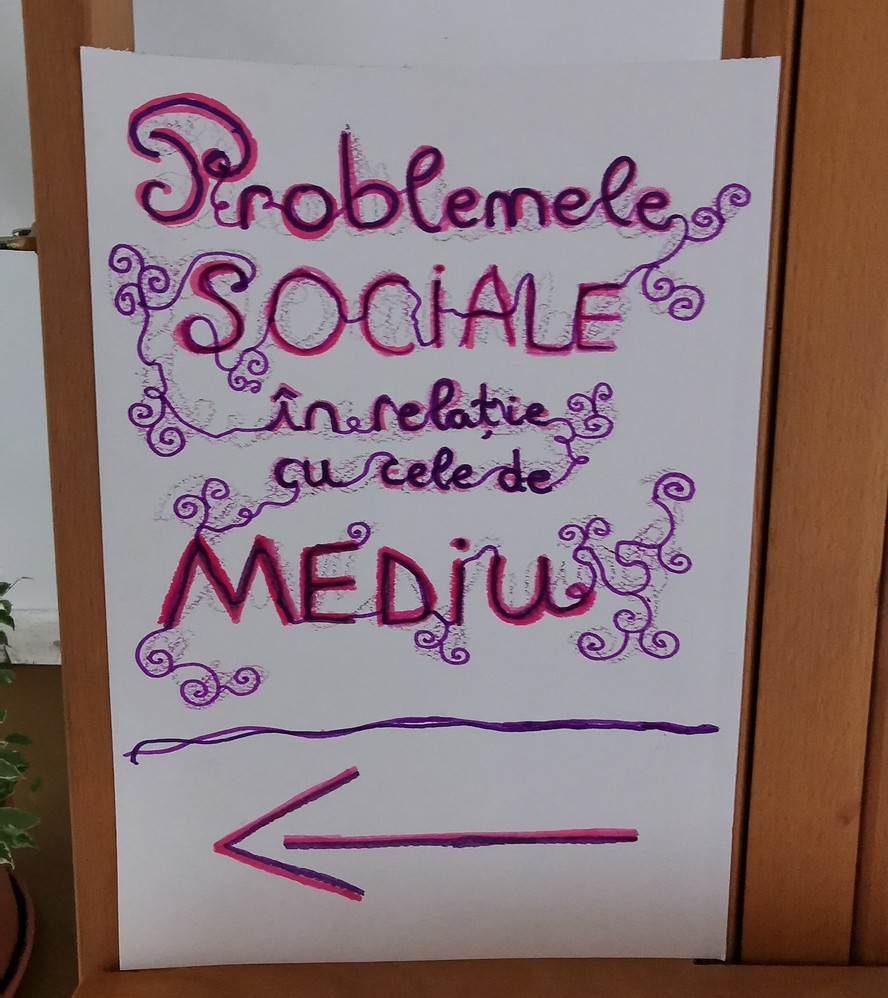 Problemele
SOCiALE
în relație
cu cele de
MEDiU